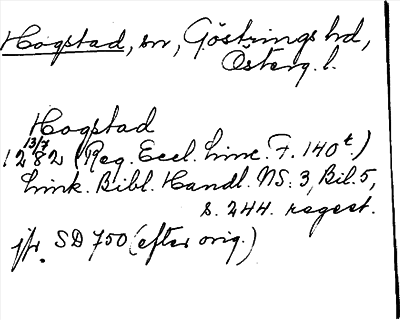 Hogstad, sn, Göstrings hd,
Österg. l.
Hogstad
13/7
1282 (Reg. Eccl. Linc. F. 140t.)
Link. Bibl. Handl. NS: 3, Bil. 5,
s. 244. regest.
jfr. SD 750 (efter orig.)